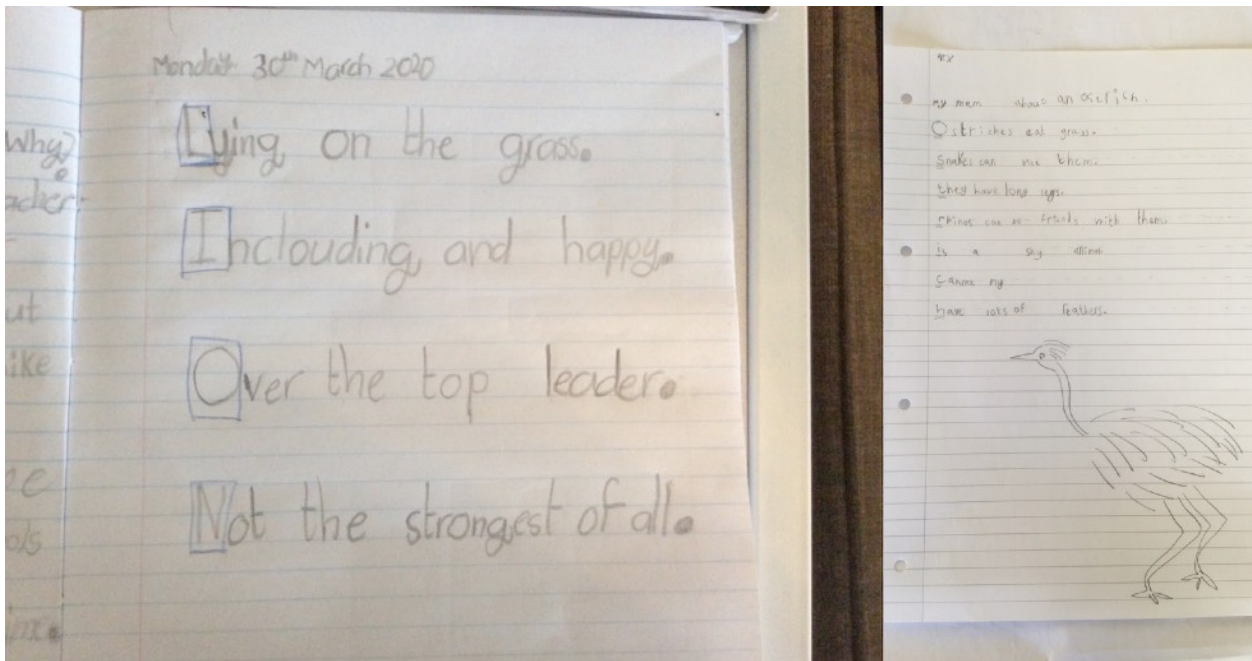 Why?
acher
ut
ike
Monday 30th March 2020
Lying on the grass.
Inclouding and happy.
Over the top leader.
Not the strongest of all.
my mum about an
Ostriches eat grass.
Snakes can them.
they have long legs.
can friends with them.
is a shy
have lots of feathers.